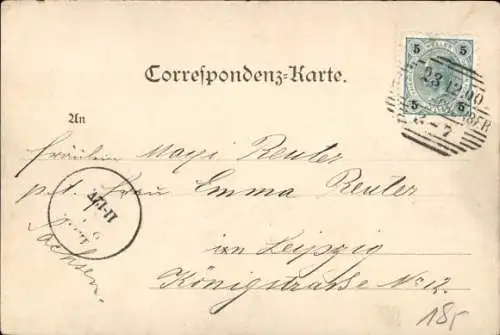 5 5
5 5
23.12.00
Correspondenz-Karte.
An
Fräulein Mayi Reuter
p. t. Frau Emma Reuter
in Leipzig
Sachsen.
Königstrasse No 12.
185